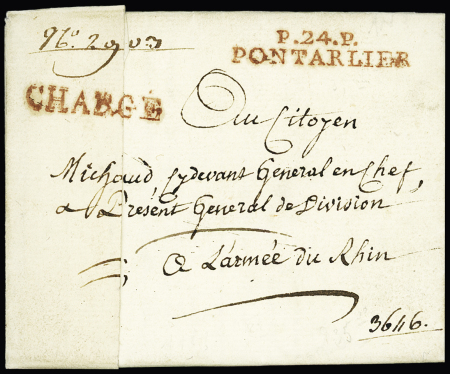 No. 2903
P.24.P.
PONTARLIER
CHARGÉ
Au Citoyen
Michaud, cydevant General en Chef,
a Présent General de Division
a L'armée du Rhin
3646.